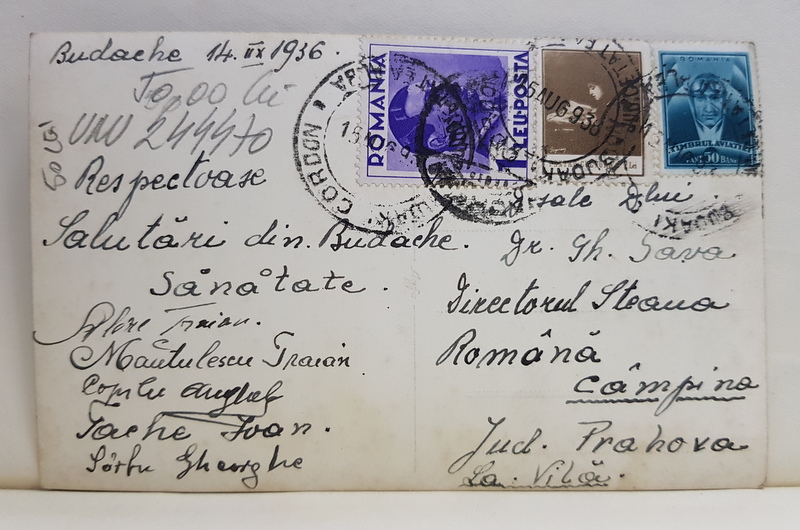 Budache 14. IIX 1936.
50 Lei
Respectoase
Salutări din. Budache.
Sănătate.
Traian.
Măntulescu Traian
Copilu
Tache Ioan.
Sârbu Gheorghe
ROMANIA
1 LEU-POSTA
ROMANIA
TIMBRUL AVIATIEI
50 BANI
CORDON
D-sale Dlui
Dr. Gh. Sava
Directorul Steaua
Română
Câmpina
Jud. Prahova
La Vilă.